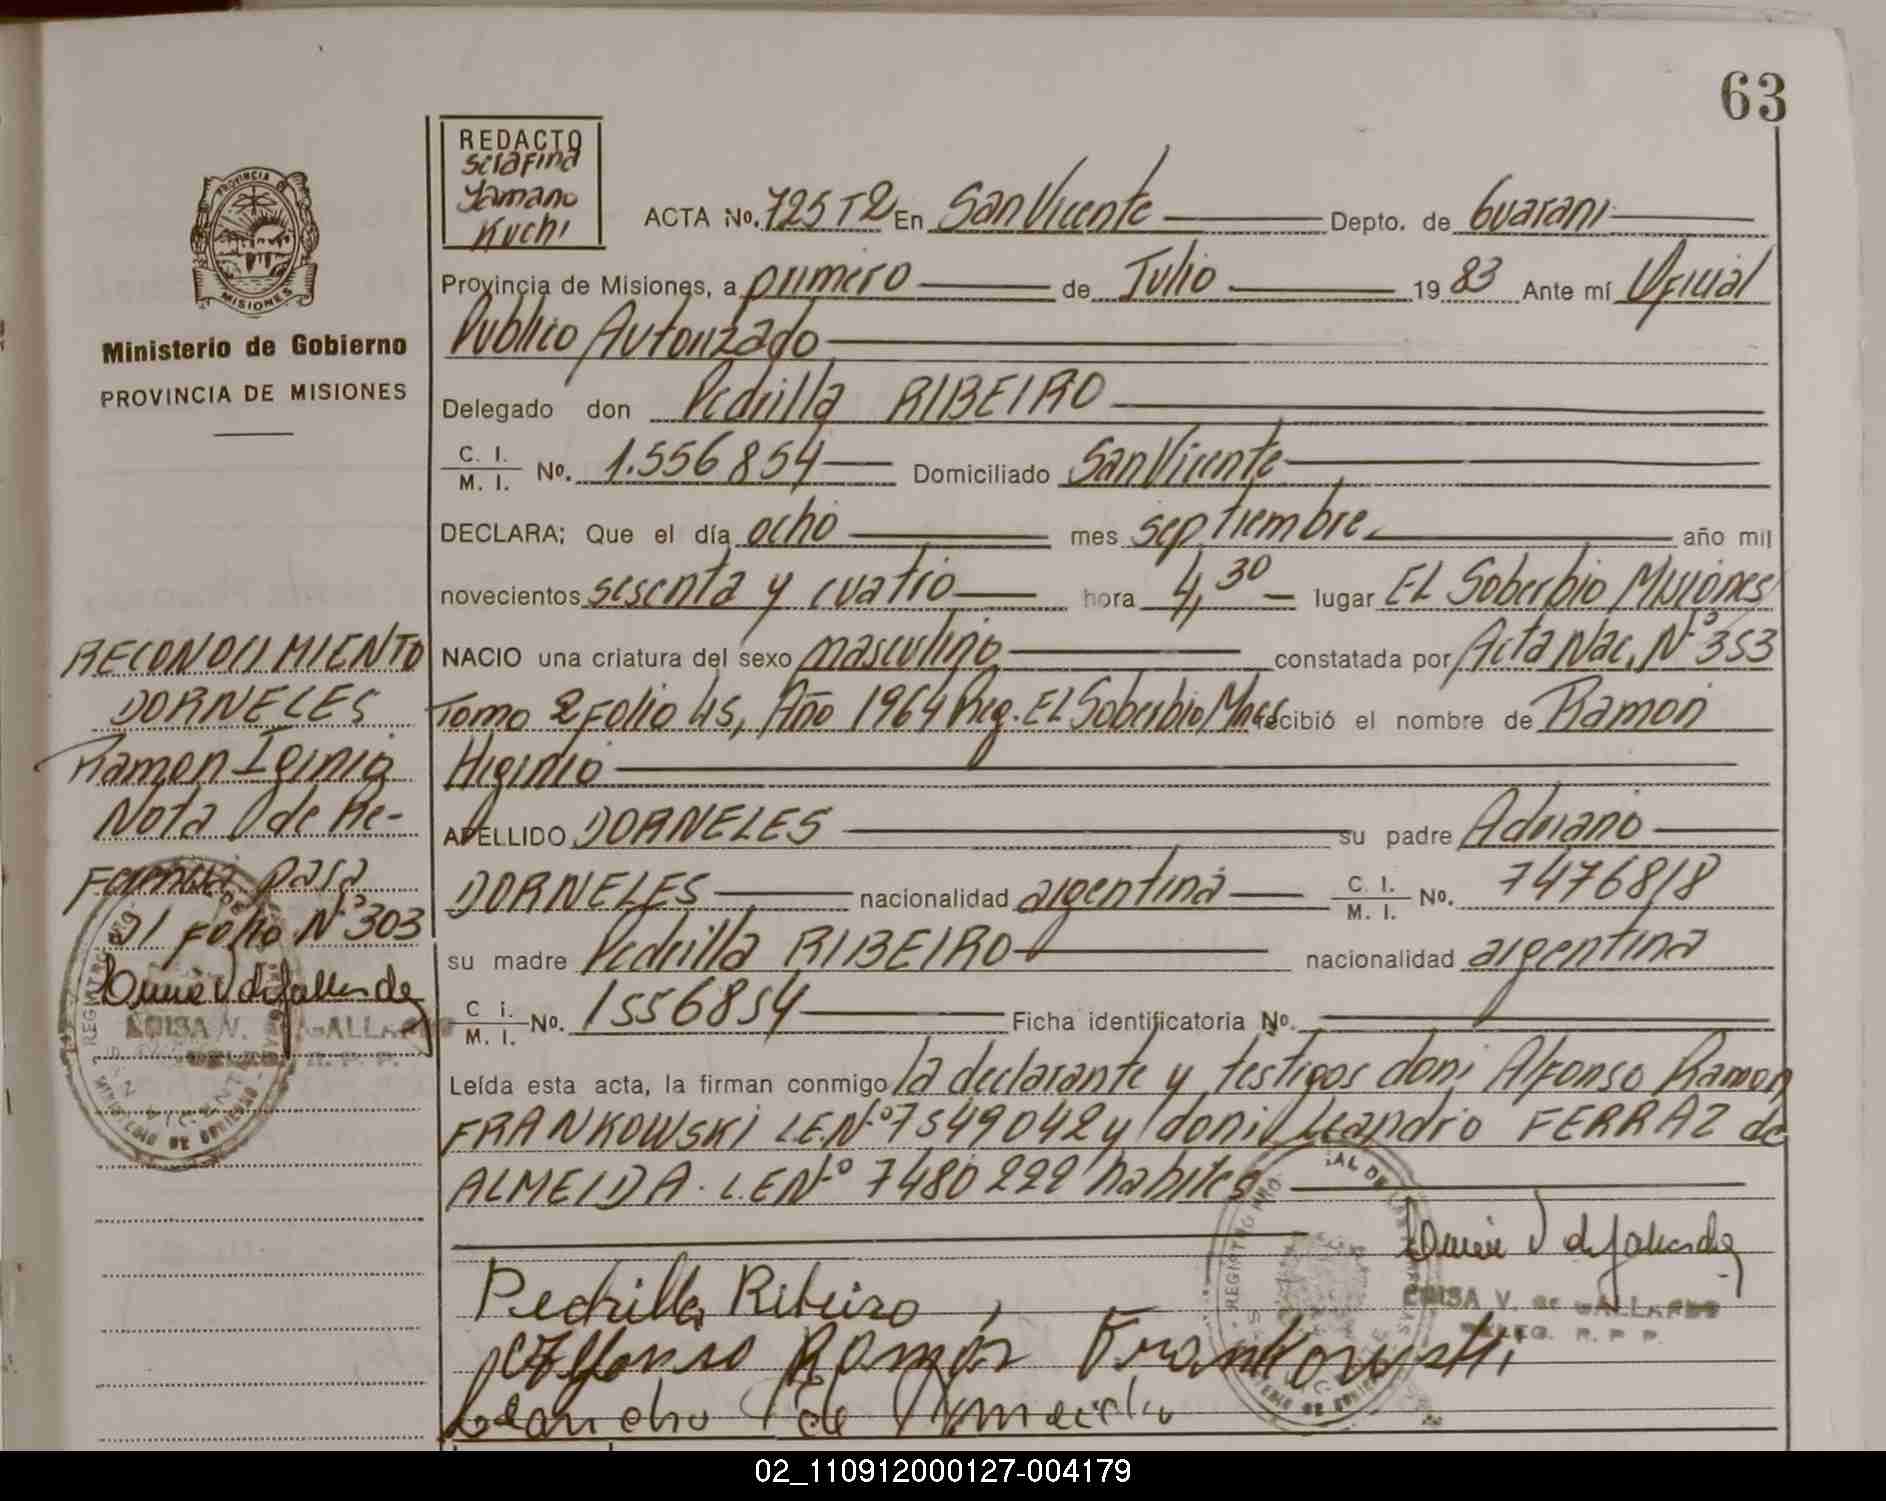 63
REDACTO
Serafina
Yamano
Kuchi
PROVINCIA DE
MISIONES
Ministerio de Gobierno
PROVINCIA DE MISIONES
ACTA No. 725 T2 En San Vicente Depto. de Guarani
Provincia de Misiones, a primero de Julio 1983 Ante mí Oficial
Publico Autorizado
Delegado don Pedrilla RIBEIRO
C. I. / M. I. No. 1.556854 Domiciliado San Vicente
DECLARA; Que el día ocho mes septiembre año mil
novecientos sesenta y cuatro hora 4,30 lugar EL Soberbio Misiones
NACIO una criatura del sexo masculino constatada por Acta Nac. Nº 353
Tomo 2 Folio 45, Año 1964 Reg. EL Soberbio Mnes recibió el nombre de Ramon
Higinio
APELLIDO DORNELES su padre Adriano
DORNELES nacionalidad argentina C. I. / M. I. No. 7476818
su madre Pedrilla RIBEIRO nacionalidad argentina
C i. / M. I. No. 1556854 Ficha identificatoria No.
Leída esta acta, la firman conmigo la declarante y testigos don; Alfonso Ramon
FRANKOWSKI L.E.Nº 7549042 y don; Leandrio FERRAZ de
ALMEIDA. L.E Nº 7480222 habiles
RECONOCIMIENTO
DORNELES
Ramon Iginio
Nota de Re-
ferencia pasa
al Folio Nº 303
LUISA V. de GALLARDO
DELEG. R. P. P.
Pedrilla Ribeiro
Alfonso Ramón Frankowski
LUISA V. de GALLARDO
DELEG. R. P. P.
02_110912000127-004179